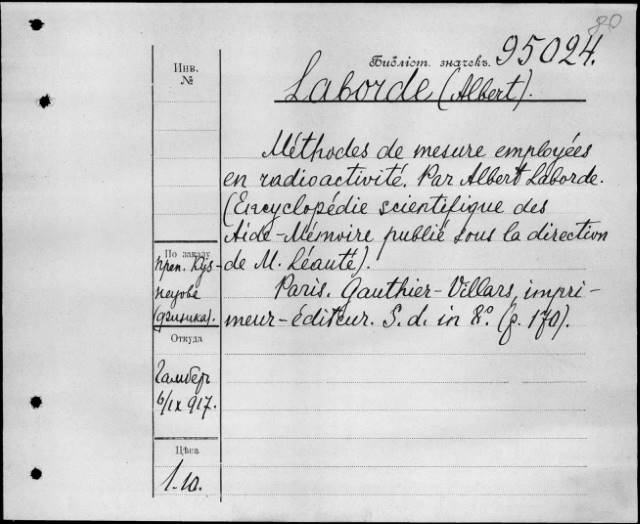 80
Библіот. значекъ. 95024.
Инв.
№
Laborde (Albert).
Méthodes de mesure employées
en radioactivité. Par Albert Laborde.
(Encyclopédie scientifique des
Aide-Mémoire publié sous la direction
de M. Léauté).
Paris. Gauthier-Villars, impri-
meur-éditeur. S. d. in 8.º (p. 170).
По заказу
преп. Куз-
нецова
(физика).
Откуда
6/IX 917.
Цѣна
1.10.